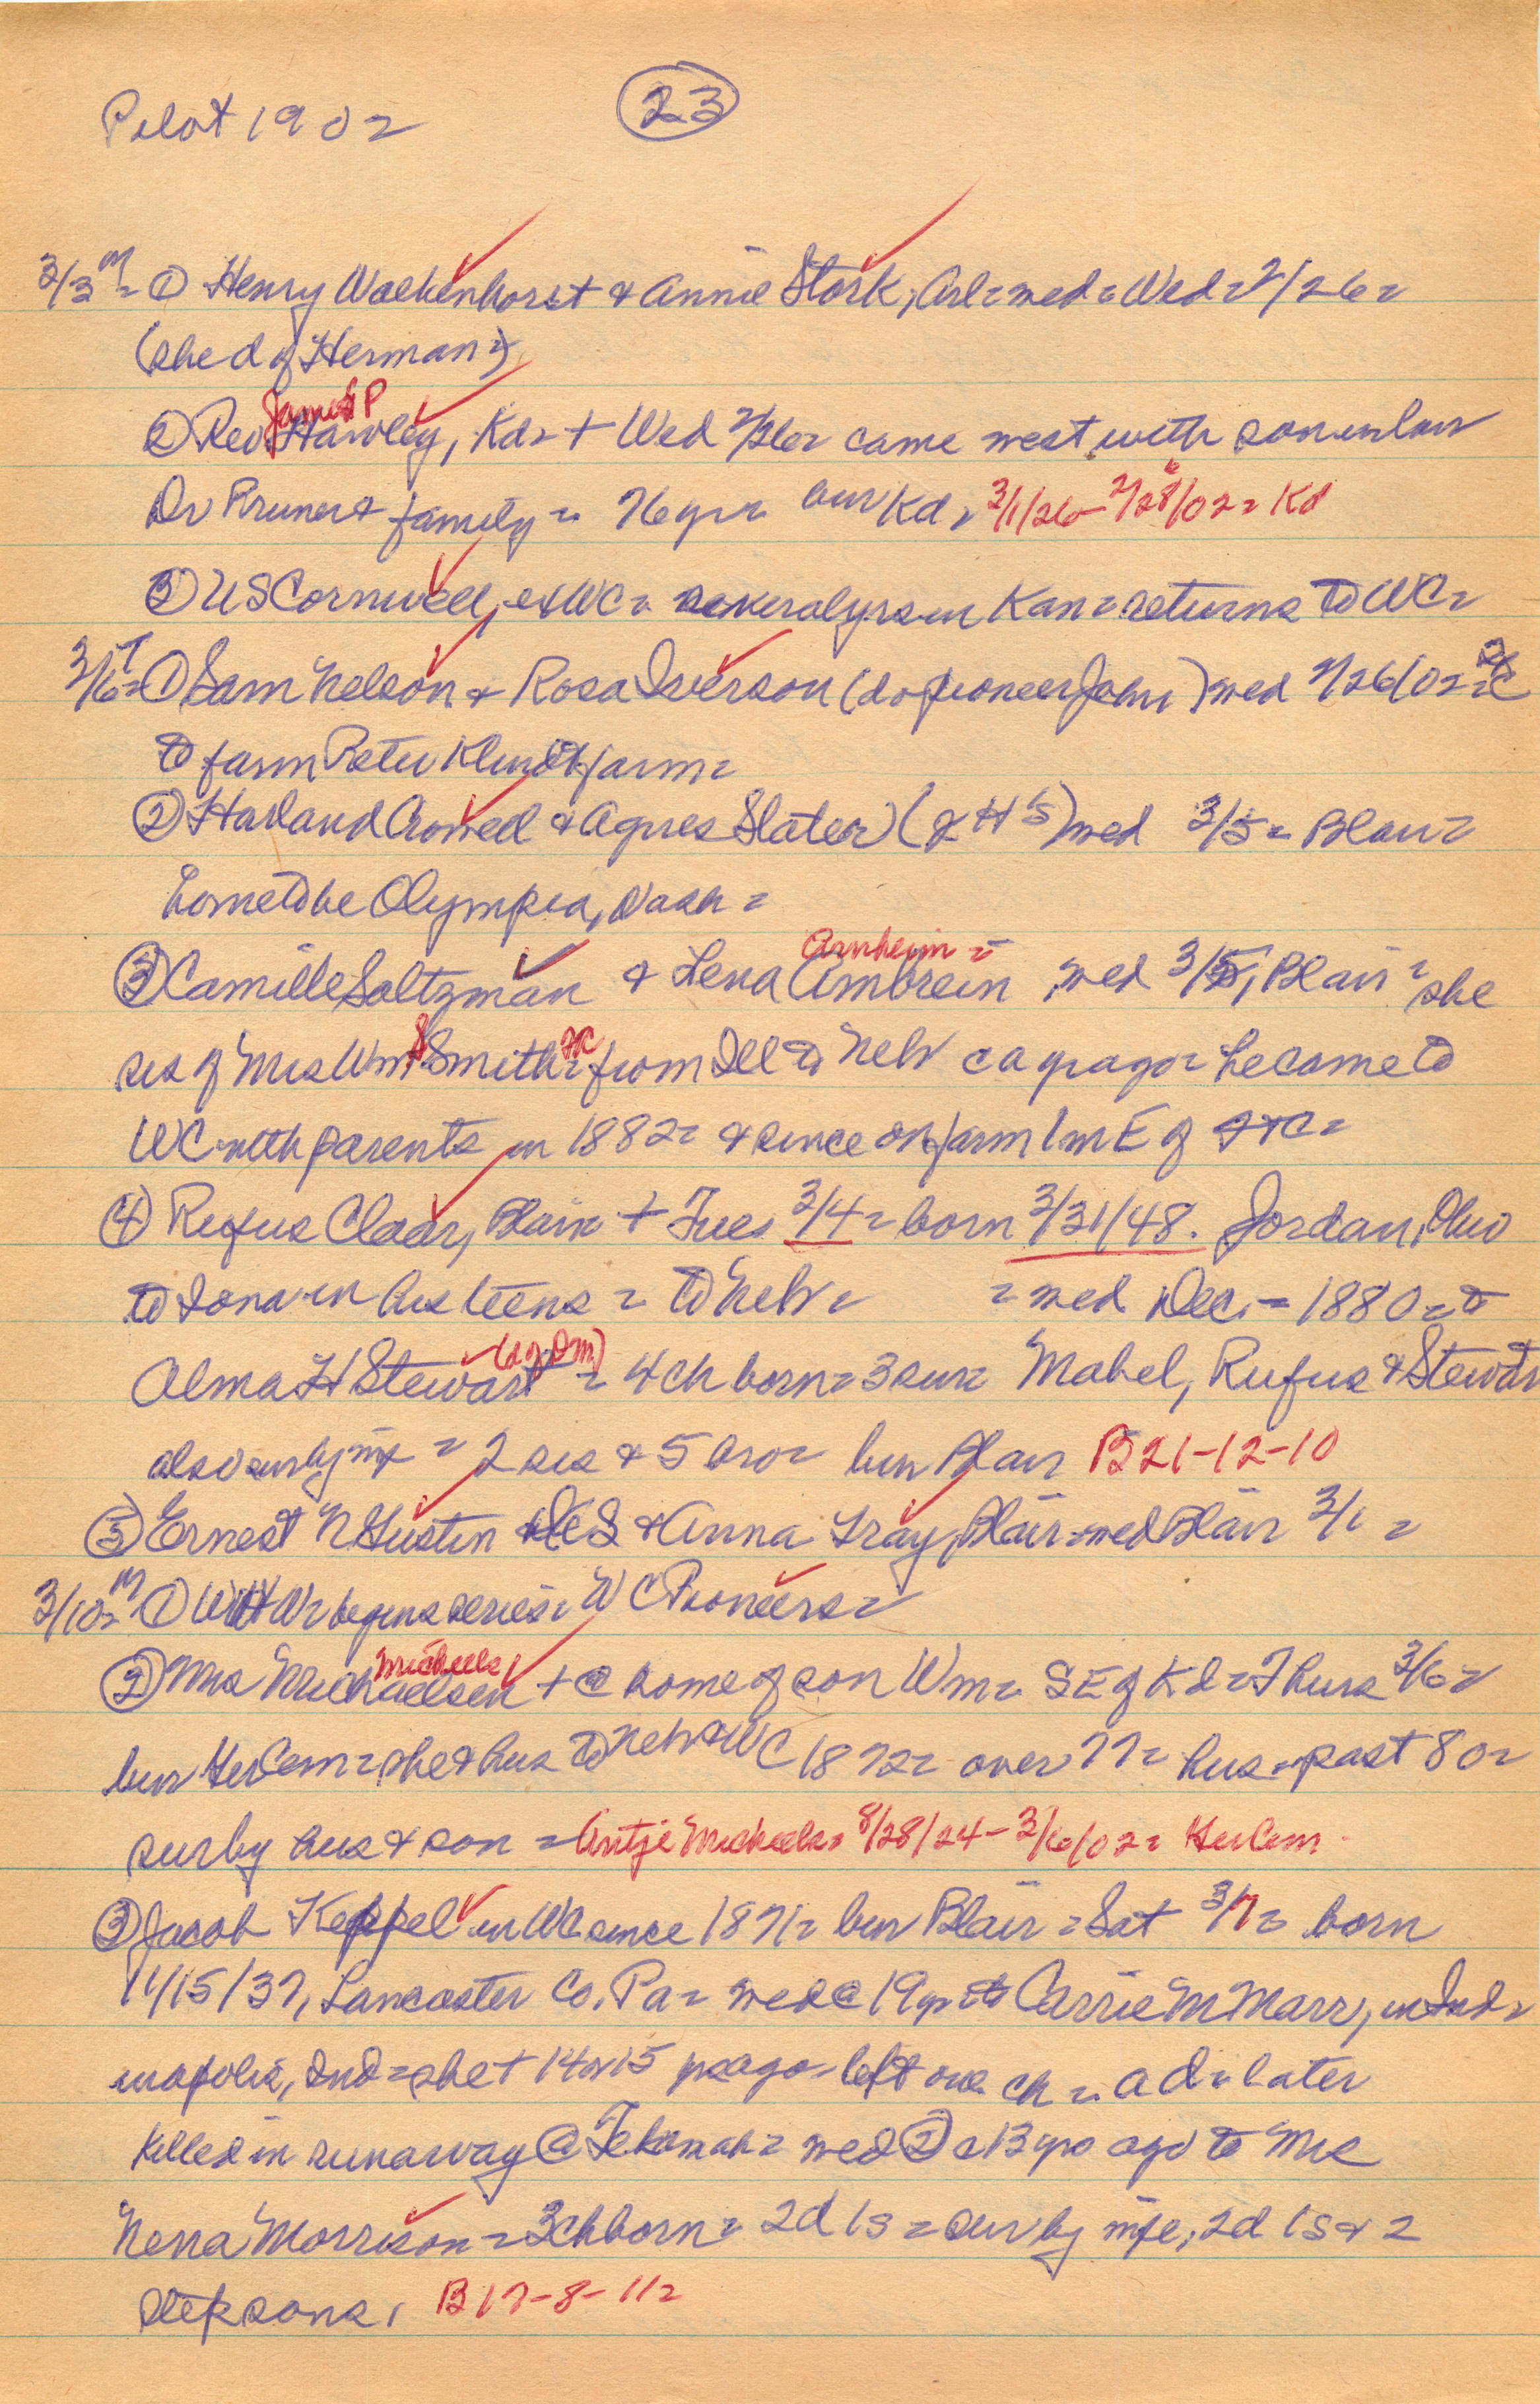 Pilot 1902 (23)
3/3 M = ① Henry Wachenhorst & Annie Stork, Arl = wed = Wed = 2/26 =
(she d of Herman =)
James P
② Rev. Hawley, Kd = + Wed 2/26 = came west with son in law
Dr Pruner & family = 76 yr = bur Kd = 3/1/26 - 2/28/02 = Kd
③ US Cornwell, ex WC = several yrs in Kan = returns to WC =
3/6 T = ① Sam Nelson & Rosa Iverson (d of pioneer John) wed 2/26/02 =
to farm Peter Klindt farm =
② Harland & Agnes Slater (2 H's) wed 3/5 = Blair =
home to be Olympia, Wash =
Arnheim =
③ Camille Saltzman & Lena Ambrein, wed 3/5, Blair = she
sis of Mrs Wm S Smith = FC from Ill to Neb c a yr ago = he came to
WC with parents in 1882 = & since on farm 1 m E of FtC =
④ Rufus Claar, Blair + Tues 3/4 = born 3/31/48. Jordan, Ohio
to Iowa in his teens = to Neb = = wed Dec. = 1880 = to
(d of Dm)
Alma H Stewart = 4 ch born = 3 sur = Mabel, Rufus & Stewart
also sur by = 2 sis & 5 bro = bur Blair B21-12-10
⑤ Ernest N Hustin & Anna Fray, Blair = wed Blair 3/1 =
3/10 = M ① WHW = begins series = WC Pioneers =
Micheels
② Mrs Michaelsen + @ home of son Wm = SE of Kd = Thurs 3/6 =
bur Her Cem = she & hus to Neb & WC 1872 = over 77 = hus = past 80 =
sur by hus & son = Antje Micheels = 8/28/24 - 3/6/02 = Her Cem.
③ Jacob Keppel in WC since 1871 = bur Blair = Sat 3/7 = born
11/15/37, Lancaster Co. Pa = wed @ 19 yr = to Carrie M Marr, in Ind =
inapolis, Ind = she + 14 or 15 yrs ago = left one ch = a d = later
killed in runaway @ Tekamah = wed ② c 13 yrs ago to Mrs
Nena Morrison = 3 ch born = 2d 1s = sur by wife, 2d 1s & 2
stepsons, B17-8-11 =